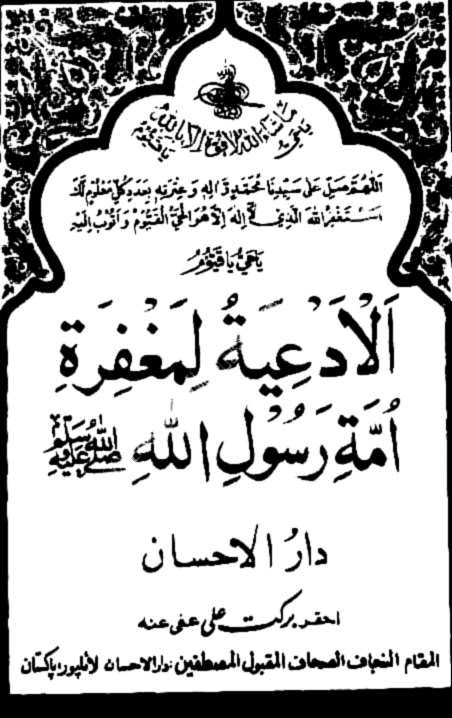 ماشاءالله لا قوة الا بالله
يا حي يا قيوم
اللهم صل على سيدنا محمد و آله و عترته بعدد كل معلوم لك
استغفر الله الذي لا إله إلا هو الحي القيوم و أتوب إليه
يا حي يا قيوم
اَلْاَدْعِيَةُ لِمَغْفِرَةِ
اُمَّةِ رَسُوْلِ اللهِ صلى الله عليه وسلم
دارُ الاحسان
احقر برکت علی عفی عنہ
المقام النجاف الصحاف المقبول المصطفین دارالاحسان لائلپور پاکستان